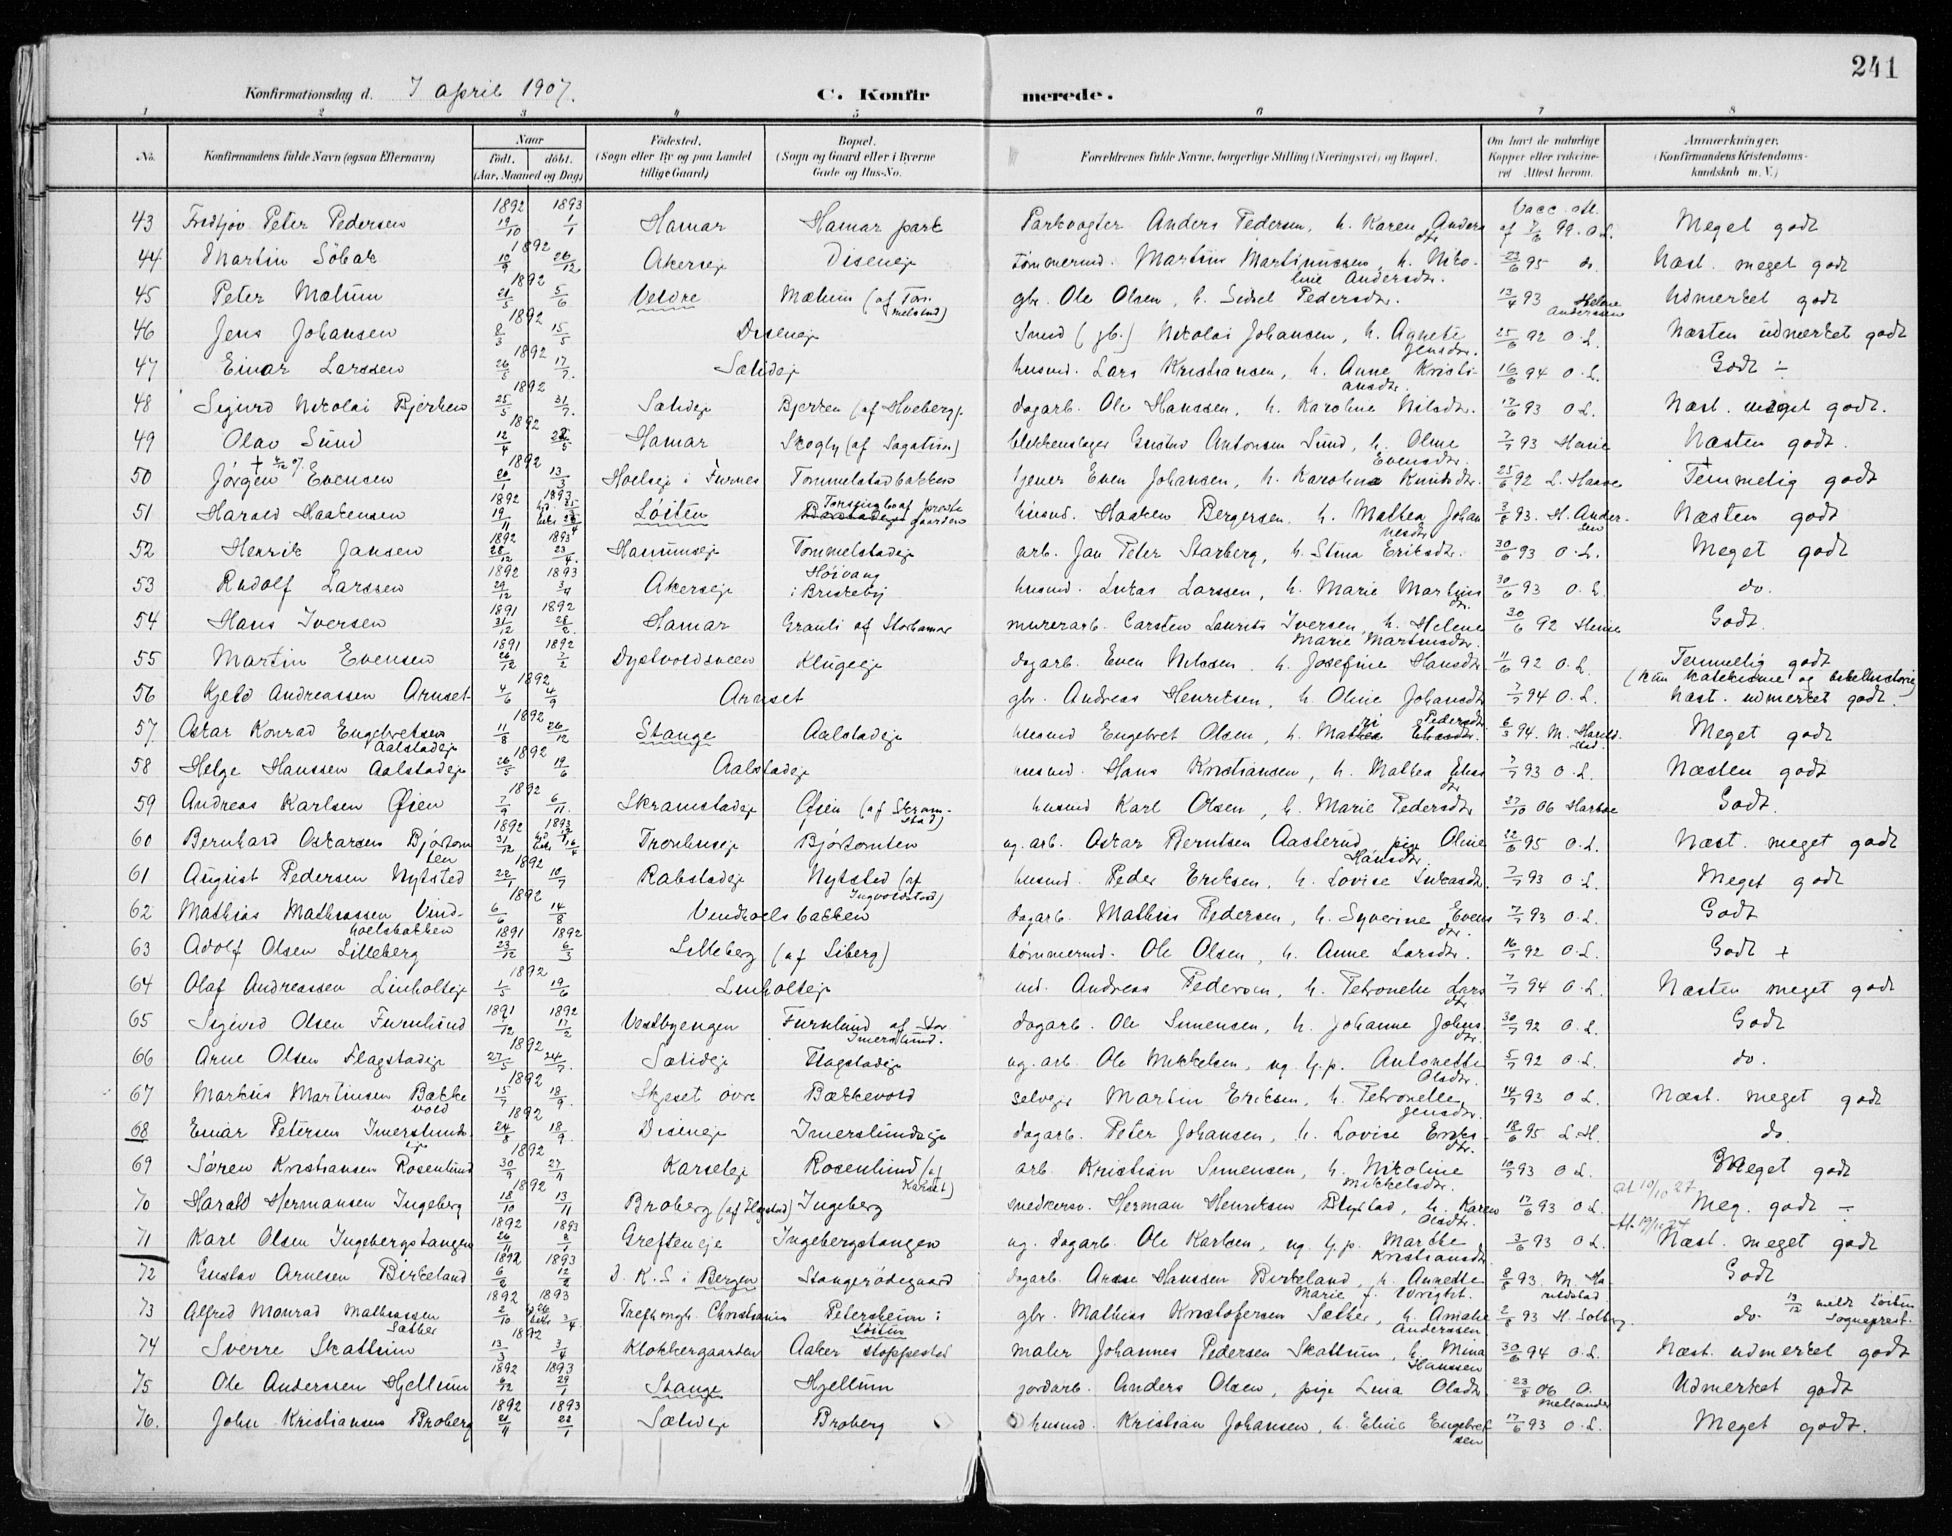 241
Konfirmationsdag d. 7 April 1907. C. Konfirmerede.
1 2 3 4 5 6 7 8
No. Konfirmandens fulde Navn (ogsaa Efternavn) Naar født. døbt. (Aar, Maaned og Dag) Fødested. (Sogn eller By og paa Landet tillige Gaard) Bopæl. (Sogn og Gaard eller i Byerne Gade og Hus-No. Forældrenes fulde Navne, borgerlige Stilling (Næringsvei) og Bopæl. Om havt de naturlige Kopper eller vakcineret. Attest herom. Anmærkninger. (Konfirmandens Kristendomskundskab m. V.)
43 Fredtjov Peter Pedersen 1892 19/10 1893 1/1 Hamar Hamar park Parkvogter Anders Pedersen, h. Karen Andersdtr Vacc. att. af 7/6 99. O L. Meget godt
44 Martin Söbak 1892 10/9 26/12 Akerseje Diseneje tømmermd. Martin Martinussen, h. Nikoline Andersdtr. 23/6 95 do. Næst. meget godt
45 Peter Mælum 1892 21/5 5/6 Veldre Mælum (af Tommelstad) gbr. Ole Olsen, h. Sidsel Pedersdtr. 13/4 93 Helene Anderssen Udmerket godt
46 Jens Johansen 1892 8/3 15/5 Diseneje Smed (gb.) Nikolai Johansen, h. Agnete Jensdtr. 25/6 92 O. L. Næsten udmerket godt
47 Einar Larssen 1892 26/5 17/7. Sælideje husmd. Lars Kristiansen, h. Anne Kristiansdtr. 16/6 94 O. L. Godt ÷
48 Sigurd Nikolai Bjerken 1892 25/5 31/7. Sælideje Bjerken (af Hveberg). dagarb. Ole Hanssen, h. Karoline Nilsdtr. 17/6 93 O L. Næst. meget godt.
49 Olav Sund 1892 12/4 22/5 Hamar Skogly (af Sagatun) blikkenslager Gustav Antonsen Sund, h. Oline Evensdtr. 7/7 93 Henie Næsten godt.
50 Jørgen Evensen 1892 20/1 13/3 Hoelseje i Furnes Tommelstadbakken tjener Even Johansen, h. Karoline Knutsdtr. 25/6 92 L. Haave Temmelig godt
51 Harald Haakensen 1892 19/11 1893 Løiten Torsginghoaf prestegaarden husmd. Haaken Bergersen, h. Mathea Johannesdtr 3/8 93. H. Andersen Næsten godt
52 Henrik Jansen 1892 28/12 1893 23/4. Hamumseje Tommelstadeje arb. Jan Peter Starberg, h. Stina Eriksdtr. 30/6 93 O. L. Meget godt
53 Rudolf Larssen 1892 29/12 1893 3/4 Akerseje Höivang i Briskeby husmd. Lukas Larssen, h. Marie Martinsdtr. 30/6 93 O. L. do.
54 Hans Iversen 1891 31/12 1892 28/2. Hamar Granli af Storhamar murerarb. Carsten Laurits Iversen, h. Helene Marie Martinsdtr. 30/6 92 Henie Godt.
55 Martin Evensen 1891 26/12 1892 7/2 Dystvoldsveen Klugeeje dagarb. Even Nilssen, h. Josefine Hansdtr. 11/6 92 O. L. Temmelig godt (kun katekisme og bibelhistorie)
56 Kjeld Andreassen Arnset 1892 4/6 4/9 Arnset gbr. Andreas Henriksen, h. Oline Johansdtr 7/7 94 O. L. Næst. udmerket godt.
57 Oskar Konrad Engebretsen Aalstadeje 1892 11/8 26/12 Stange Aalstadeje husmd Engebret Olsen, h. Mathea Pedersdtr 6/3 94. M. Haralstad. Meget godt
58 Helge Hanssen Aalstadeje 1892 26/5 19/6 Aalstadeje husmd. Hans Kristiansen, h. Mathea Eliasdtr 7/7 93 O. L. Næsten godt
59 Andreas Karlsen Øien 1892 7/9 6/11. Skramstadeje Øien (af Skramstad) husmd Karl Olsen, h. Marie Pedersdtr 27/10 06 Harboe Godt.
60 Bernhard Oskarsen Bjørtomten 1892 31/12 1893 Tronhuseje Bjørtomten ug. arb. Oskar Berntsen Aasterud, pige Oline Hansdtr. 22/6 95 O. L. Næst. meget godt
61 August Pedersen Nytsted 1892 22/1 10/7 Rabstadeje Nytsted (af Ingvoldstad) husmd. Peder Eriksen, h. Lovise Lukasdtr. 7/7 93 O. L. Meget godt
62 Mathias Mathiassen Vindhoelsbakken 1892 6/6 14/8 Vindhoelsbakken dagarb. Mathias Pedersen, h. Syverine Evensdtr. 7/7 93 O. L. Godt
63 Adolf Olsen Lilleberg 1891 23/12 1892 6/3 Lilleberg (af Liberg) tømmermd. Ole Olsen, h. Anne Larsdtr. 16/7 92 O. L. Godt +
64 Olaf Andreassen Linholteje 1892 1/5 19/6 Linholteje md. Andreas Pedersen, h. Petronelle Larsdtr 7/7 94 O. L. Næsten meget godt
65 Sigurd Olsen Furulund 1891 7/12 1892 17/2 Vestbyengen Furulund af Stor Imerslund. dagarb. Ole Simensen, h. Johanne Johnsdtr. 30/7 92 O. L. Godt
66 Arne Olsen Flagstadeje 1892 27/5 24/7. Sælideje Flagstadeje ug. arb. Ole Mikkelsen, ug. h. p. Antonette Olsdtr. 5/7 92 O. L. do.
67 Markus Martinsen Bakkevold 1892 15/7 18/9. Skjeset övre Bakkevold selveje Martin Eriksen, h. Petronelle Jensdtr. 14/7 93 O L. Næst. meget godt
68 Einar Petersen Imerslundeje 1892 24/8 18/9. Diseneje Imerslundeje dagarb. Peter Johansen, h. Lovise Eriksdtr. 18/6 95 L H. do
69 Søren Kristiansen Rosenlund 1892 30/9 27/11 Karseteje Rosenlund (af Karset) arb. Kristian Simensen, h. Nikoline Mikkelsdtr. 10/7 93 O L. Meget godt
70 Harald Hermansen Ingeberg 1892 18/10 13/11 Broberg (af Flagstad) Ingeberg snedkersv. Herman Henriksen Blystad, h. Karen Olsdtr. 17/6 93 O L. at. 19/10 27 Meg. godt ÷
71 Karl Olsen Ingebergstangen 1892 26/11 1893 8/1 Grefteneje Ingebergstangen ug. dagarb. Ole Karlsen, ug. h. p. Marthe Kristiansdtr 3/6 93 O L. Næst. meget godt
72 Gustav Arnesen Birkeland 1892 6/2 1893 12/2 D. K. S i Bergen Stangerødegaard dagarb. Arne Hanssen Birkeland, h. Annette Marie f. Wright. 8/6 93. M. Haraldstad Godt
73 Alfred Monrad Mathiassen Sæther 1892 2/10 1893 3/4 Trefh.mgh. Christiania Petersheim i Løiten gbr. Mathias Kristofersen Sæther, h. Amalie Anderssen 2/8 93 H. Solberg do. 13/12 meldt Løiten sogneprest.
74 Sverre Skattum 1892 13/3 3/4 Klokkergaarden Aaker stoppested maler Johannes Pedersen Skattum, h. Mina Hanssen 30/6 94 O. L. Næst. udmerket godt
75 Ole Anderssen Hjellum 1892 6/12 1893 29/1 Stange Hjellum jordarb. Anders Olsen, pige Lina Olsdtr. 23/8 06 O. Mellander Udmerket godt
76. John Kristiansen Broberg 1892 21/11 1893 22/1 Sælideje Broberg husmd. Kristian Johansen, h. Eline Engebretsen 17/6 93 O. L. Meget godt.